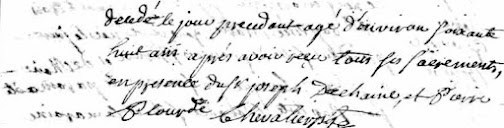 decedé le jour precedant agé d'environ soixante
huit ans aprés avoir reçu tous ses sacrements,
en presence du Sr joseph Dechaine, et Pierre
Plourde Chevalier ptre